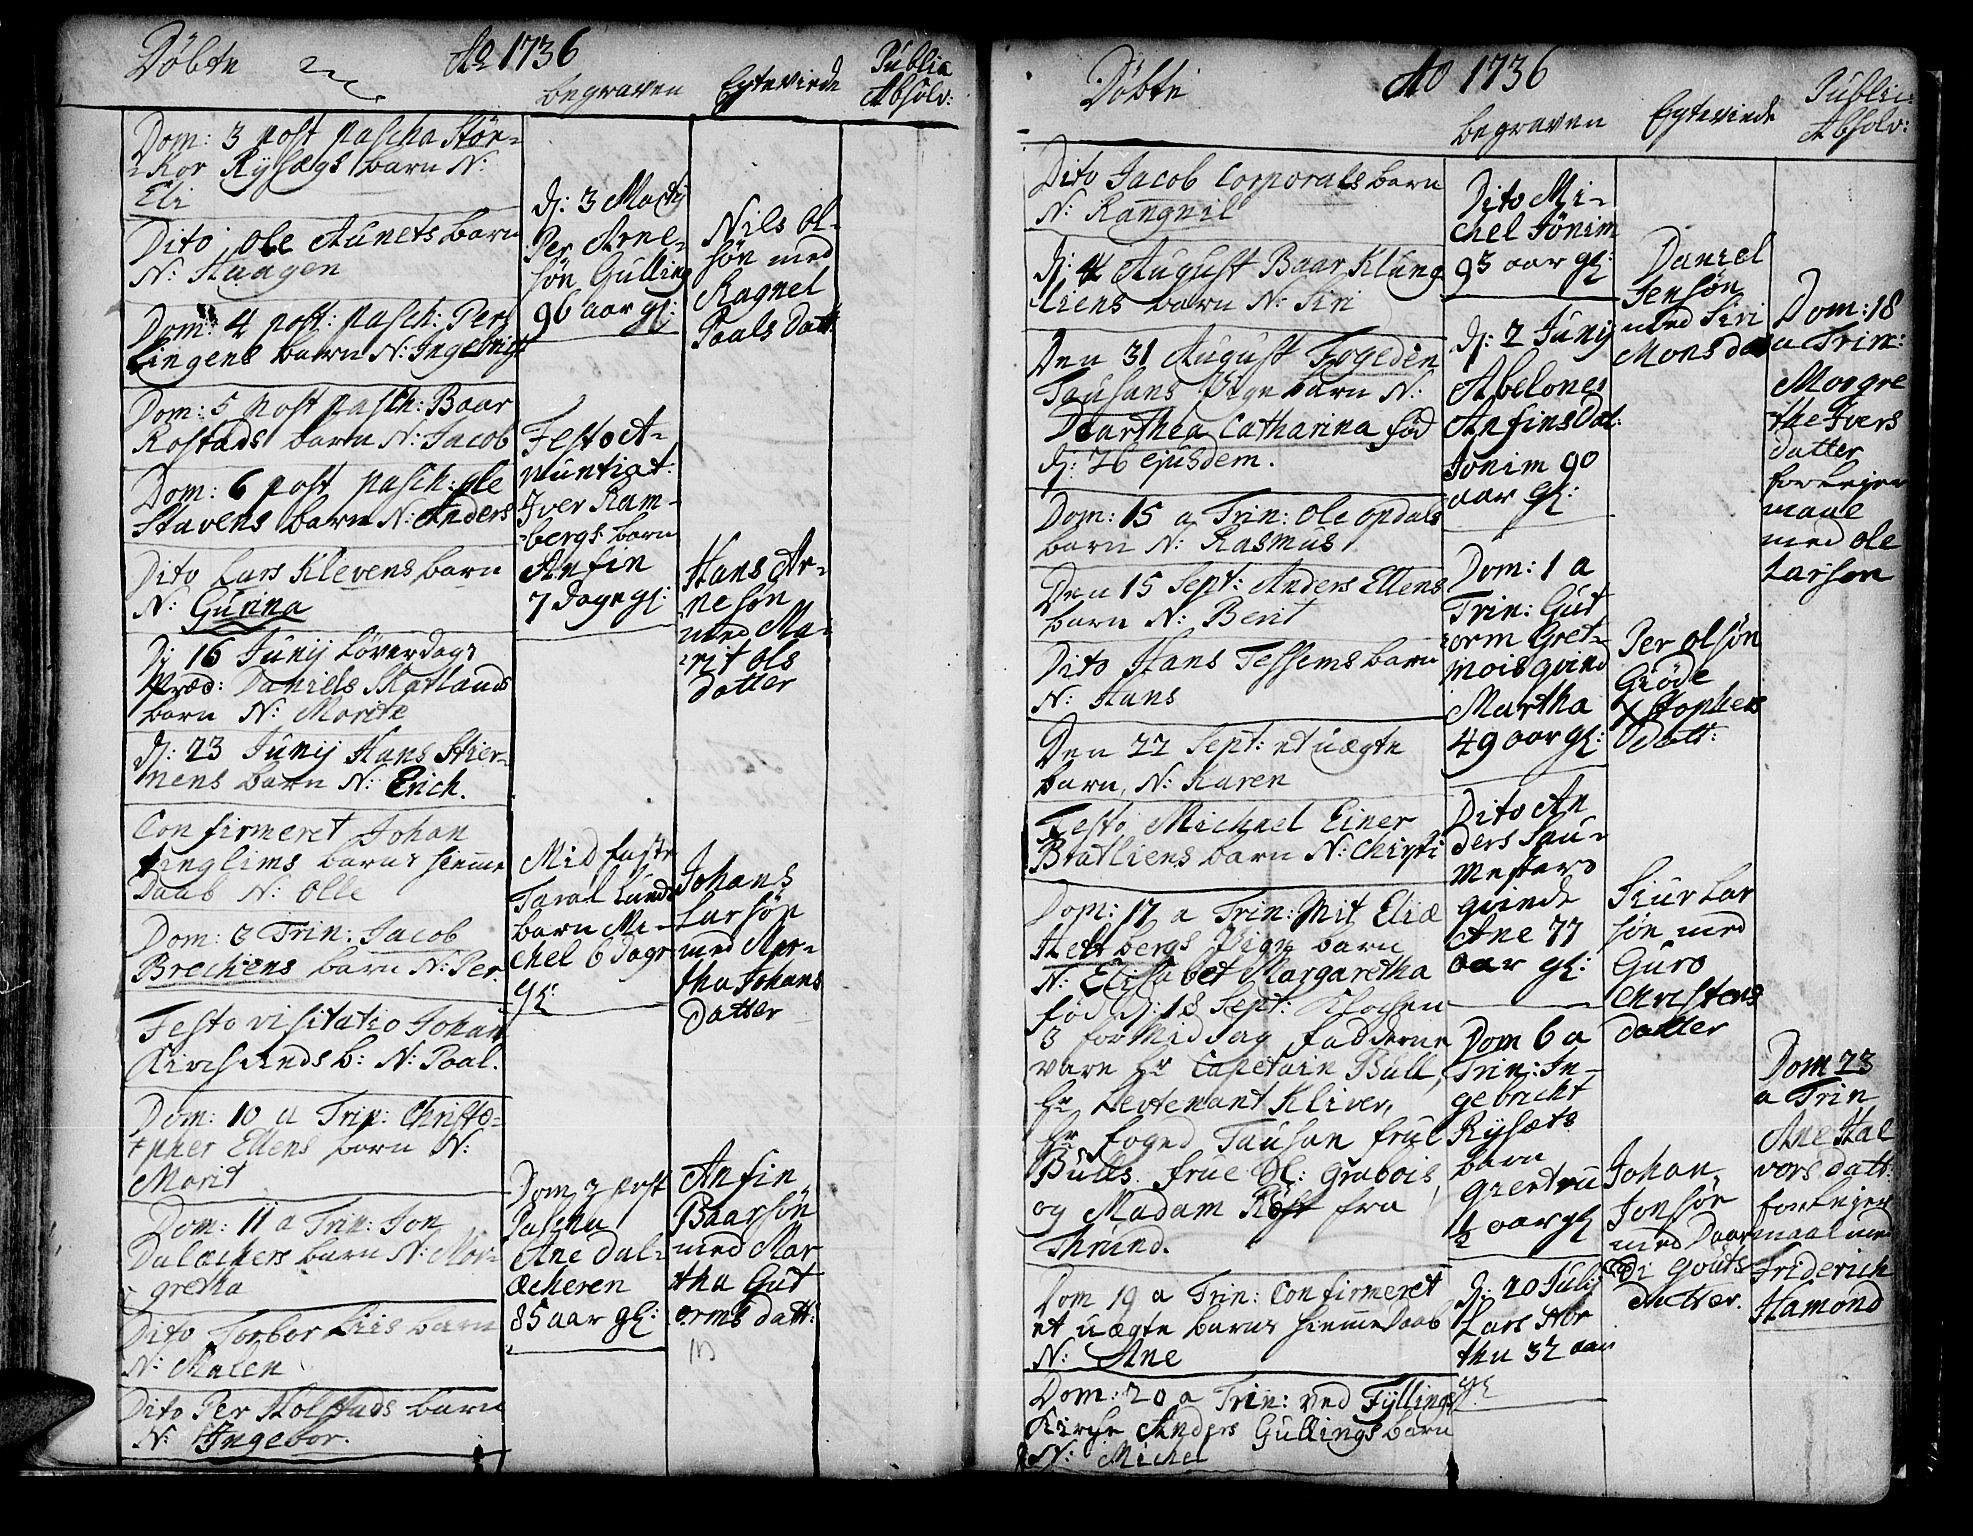 Döbte
Ao 1736
begraven
Egteviede
Publia
Absolv:
Dom: 3 post pascha Stör-
Kor Rysægs barn N:
Eli
Dito Ole Aunets barn
N: Haagen
Dom: 4 post: pasch: Per
Lingens barn N: Ingebrigt
Dom: 5 post pasch: Baar
Rostads barn N: Jacob
Dom: 6 post pasch: Ole
Stavens barn N: Anders
Dito Lars Klevens barn
N: Gurina
Dj 16 Junij Löverdags
Præd: Daniels Matlands
barn N: Marite
dj: 23 Junij Hans Stier-
nens barn N: Erich.
Confirmeret Johan
Ringlims barns hiemme
Daab N: Olle
Dom: 3 Trin: Jacob
Brechens barn N: Per
Festo visitatio Johan
Kirchlands b: N: Paal.
Dom: 10 a Trin: Christo-
pher Ellens barn N:
Morit
Dom: 11 a Trin: Jon
Dalæchers barn N: Mor-
gretha
Dito Torber Liis barn
N: Malen
Dito Per Holstads barn
N: Ingebor.
dj: 3 Martij
Per Arne-
søn Gulling
96 aar gl:
Festo A-
nuntiat:
Iver Ram-
bergs barn
Anfin
7 dage gl:
Mid faste
Taral Lunds
barn Mi-
chel 6 dage
gl:
Dom 3 post
Pascha
Ane dal-
æcheren
85 aar gl:
Nils Ol-
søn med
Ragnel
Paals Datt:
Hans Ar-
nesøn
med Ma-
rit Ols
datter
Johans
Larsøn
med Mar-
tha Johans
datter
Anfin
Baarsøn
med Mar
tha Gut
orms datt:
Döbte
Ao 1736
begraven
Egteviede
Public:
Absolv:
Dito Jacob Corporals barn
N: Rangnil
dj: 4 August Baar Klung
liens barn N: Siri
Den 31 August Fogeden
Tausans Pige barn N:
Doarthea Catharina fød
dj: 26 ejusdem.
Dom: 15 a Trin: Ole Opdals
barn N: Rasmus
Den 15 Sept: Anders Ellens
barn N: Berit
Dito Hans Tessems barn
N: Hans
Den 22 Sept: et uægte
barn, N: Karen
Festo Michael Einer
Bratliens barn N: Chirsti
Dom: 17 a Trin: Mit Eliæ
Heltbergs Pige barn
N: Elisabet Margaretha
fød dj: 18 Sept: Klochen
3 formiddag fadderne
vare Hr Capetain Bull,
Hr Leutenant Kliver,
Hr foged Tausan frue
Bulls. frue Sl: Grabois,
og Madam Røst fra
Thrund.
Dom 19 a Trin: Confirmeret
et uægte barns hiemme Daab
N: Ane
Dom: 20 a Trin: ved Fyllings
Kirche Anders Gullings barn
N: Michel
Dito Mi-
chel Jönim
93 aar gl:
dj: 2 Junij
Abelone
Anfinsdat:
Jonim 90
aar gl:
Dom: 1 a
Trin: Gut
orm Gret-
mois qvind
Martha
49 aar gl:
Dito An
ders Snu-
Mestard
qvinde
Ane 77
aar gl:
Dom 6 a
Trin: In-
gebricht
Rysæts
barn
Giertru
1/2 aar gl
dj: 20 Julij
Lars Hor
thu 32 aar
gl
Daniel
Jensøn
med Siri
Monsdat
Per Olsøn
Giöde
Xstophers
datt:
Siur Lar
søn med
Guro
Christens
datter
Johan
Jonsøn
med Daar
di Gouts
datter.
Dom: 18
a Trin:
Morgre
the Ivers
datter
for Lejer
maal
med Ole
Larson
Dom 23
a Trin
Ane Hal
vors datt:
for Lejers
maal med
Friderich
Hamond